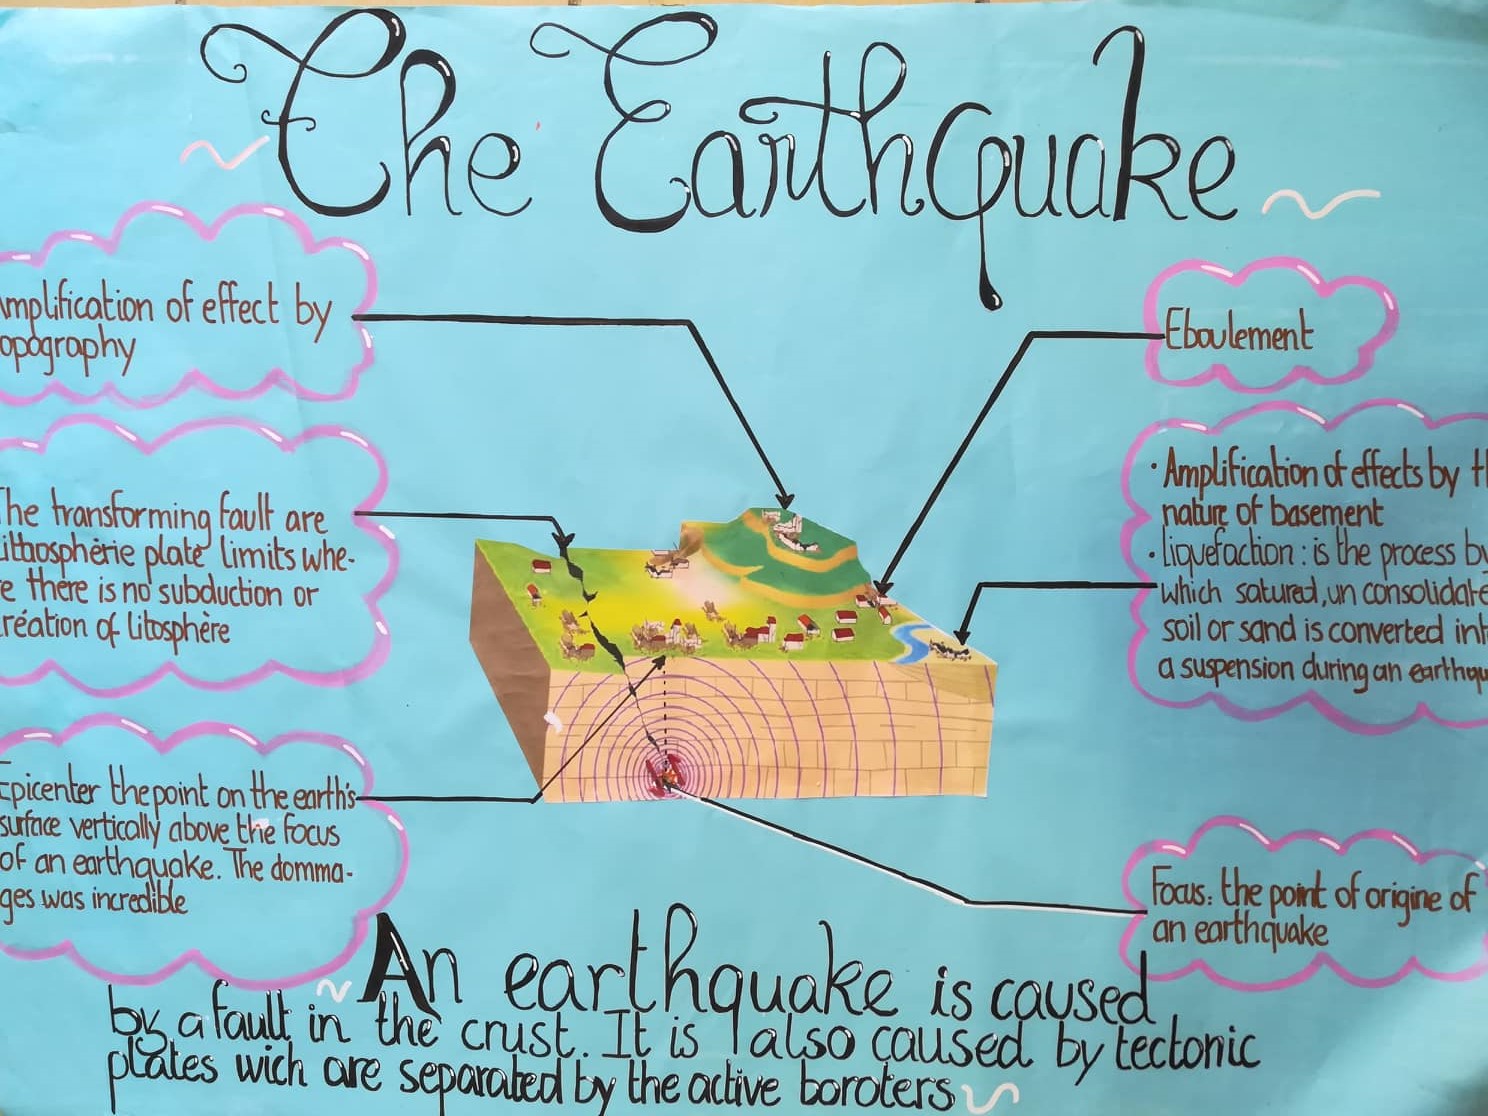 The Earthquake
mplification of effect by
opography
Eboulement
The transforming fault are
Lithosphèrie plate limits whe-
e there is no subduction or
réation of litosphère
• Amplification of effects by th
nature of basement
• liquefaction : is the process by
which satured, un consolidate
soil or sand is converted int
a suspension during an earthqu
Epicenter the point on the earth's
surface vertically above the focus
of an earthquake. The domma-
ges was incredible
Focus: the point of origine of
an earthquake
An earthquake is caused
by a fault in the crust. It is also caused by tectonic
plates wich are separated by the active boroters